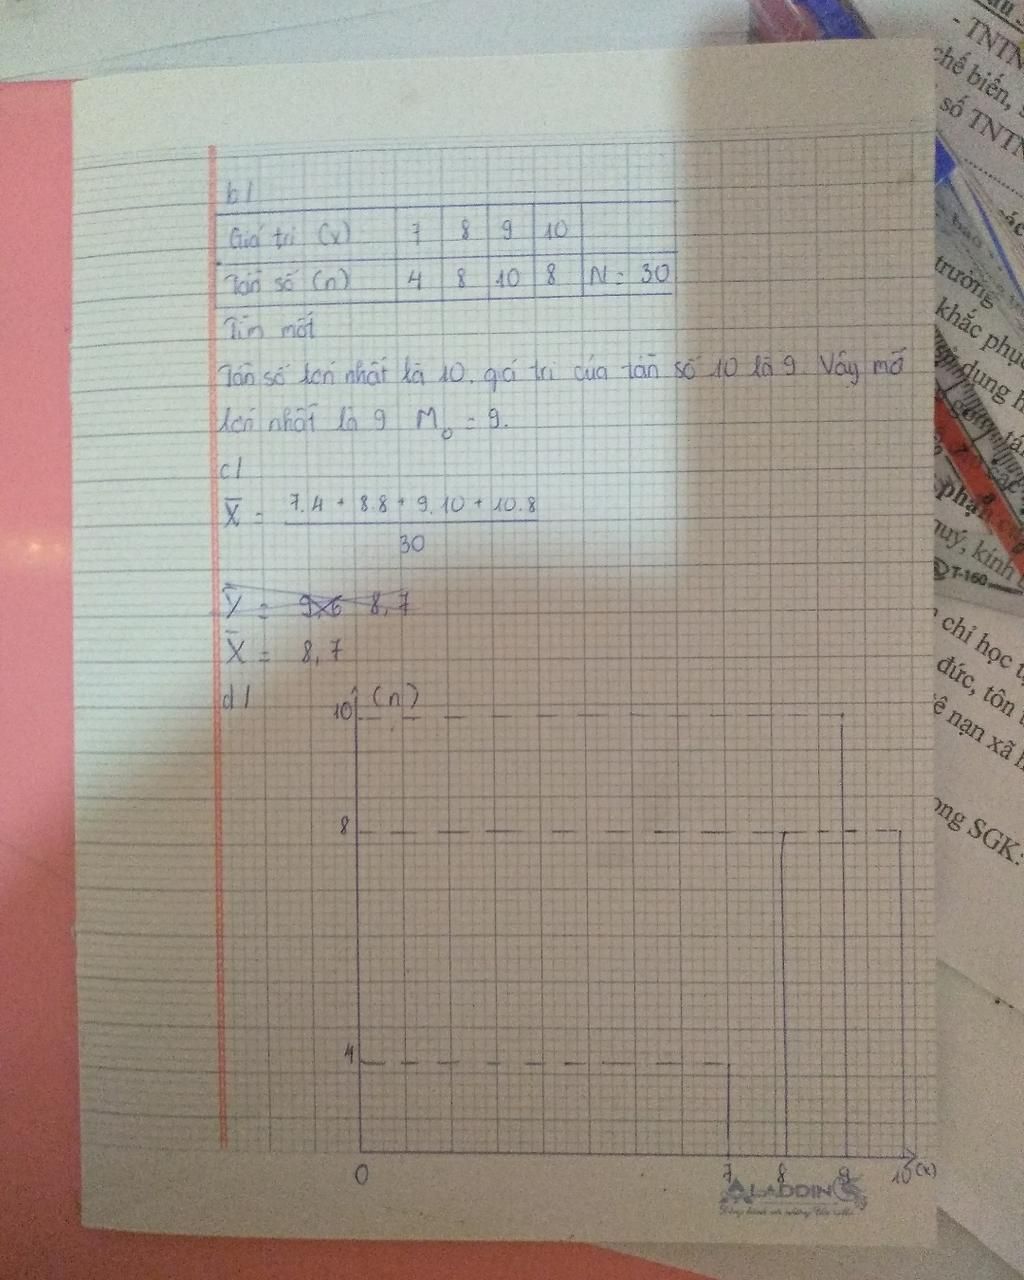 b/
Giá trị (x) 7 8 9 10
Tần số (n) 4 8 10 8 N = 30
Tìm mốt
Tần số lớn nhất là 10. giá trị của tần số 10 là 9. Vậy mố
lớn nhất là 9 M₀ = 9.
c/
X̄ = 7.4 + 8.8 + 9.10 + 10.8
30
X̄ = 8,7
d/
(n)
10
8
4
0 7 8 9 10 (x)
ALADDIN
- TNTN
chế biến,
số TNTN
bao
trường
khắc phục
dụng h
phạn
quý, kính
T-160
chỉ học t
đức, tôn t
nạn xã h
ong SGK: